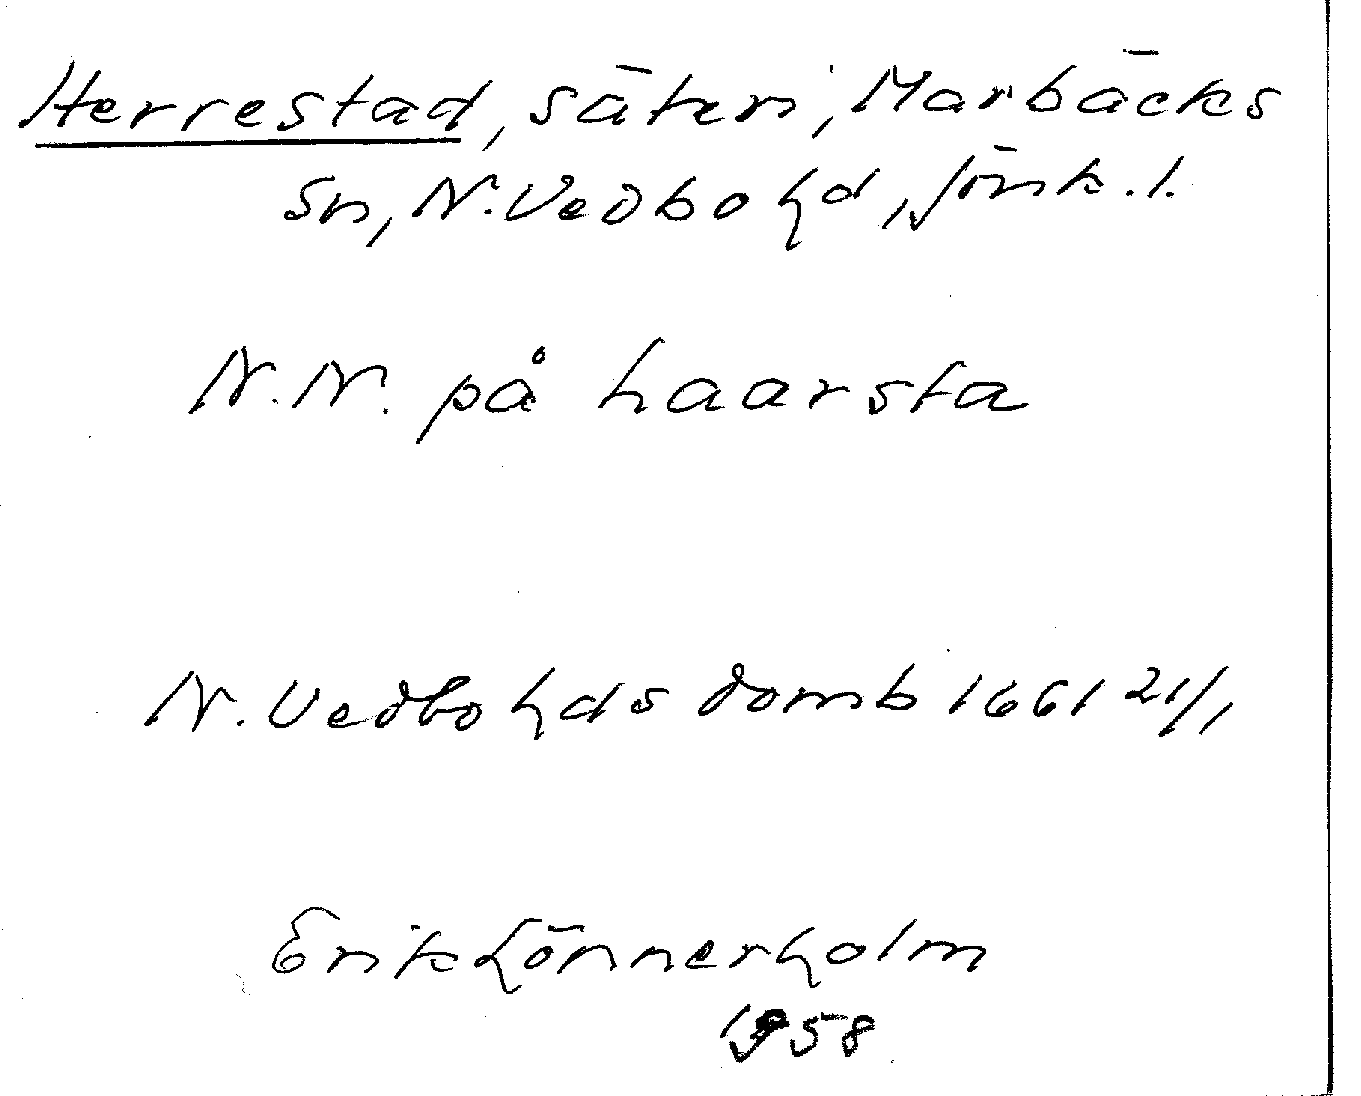 Herrestad, säteri, Marbäcks
Sn, N. Vedbo hd, Jönk. l.
N. N. på haarsta
N. Vedbo hds domb 1661 21/1
Erik Lönnerholm
1958